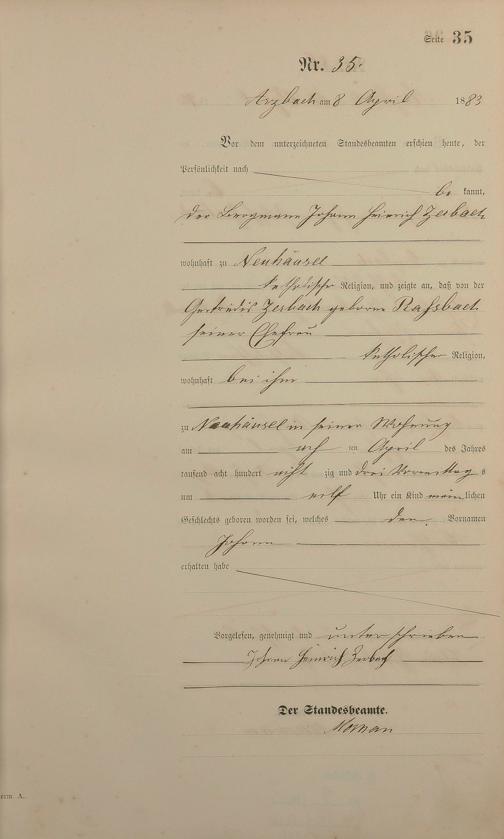 Seite 35
Nr. 35.
Arzbach am 8 April 1883
Vor dem unterzeichneten Standesbeamten erschien heute, der
Persönlichkeit nach
be kannt,
der Bergmann Johann Heinrich Zerbach
wohnhaft zu Neuhäusel
katholischer Religion, und zeigte an, daß von der
Zerbach geborne
seiner Ehefrau
katholischer Religion,
wohnhaft bei ihm
zu Neuhäusel in seiner Wohnung
am ten April des Jahres
tausend acht hundert acht zig und drei Vormittag s
um eilf Uhr ein Kind männlichen
Geschlechts geboren worden sei, welches den Vornamen
Johann
erhalten habe
Vorgelesen, genehmigt und unterschrieben
Johann Heinrich Zerbach
Der Standesbeamte.